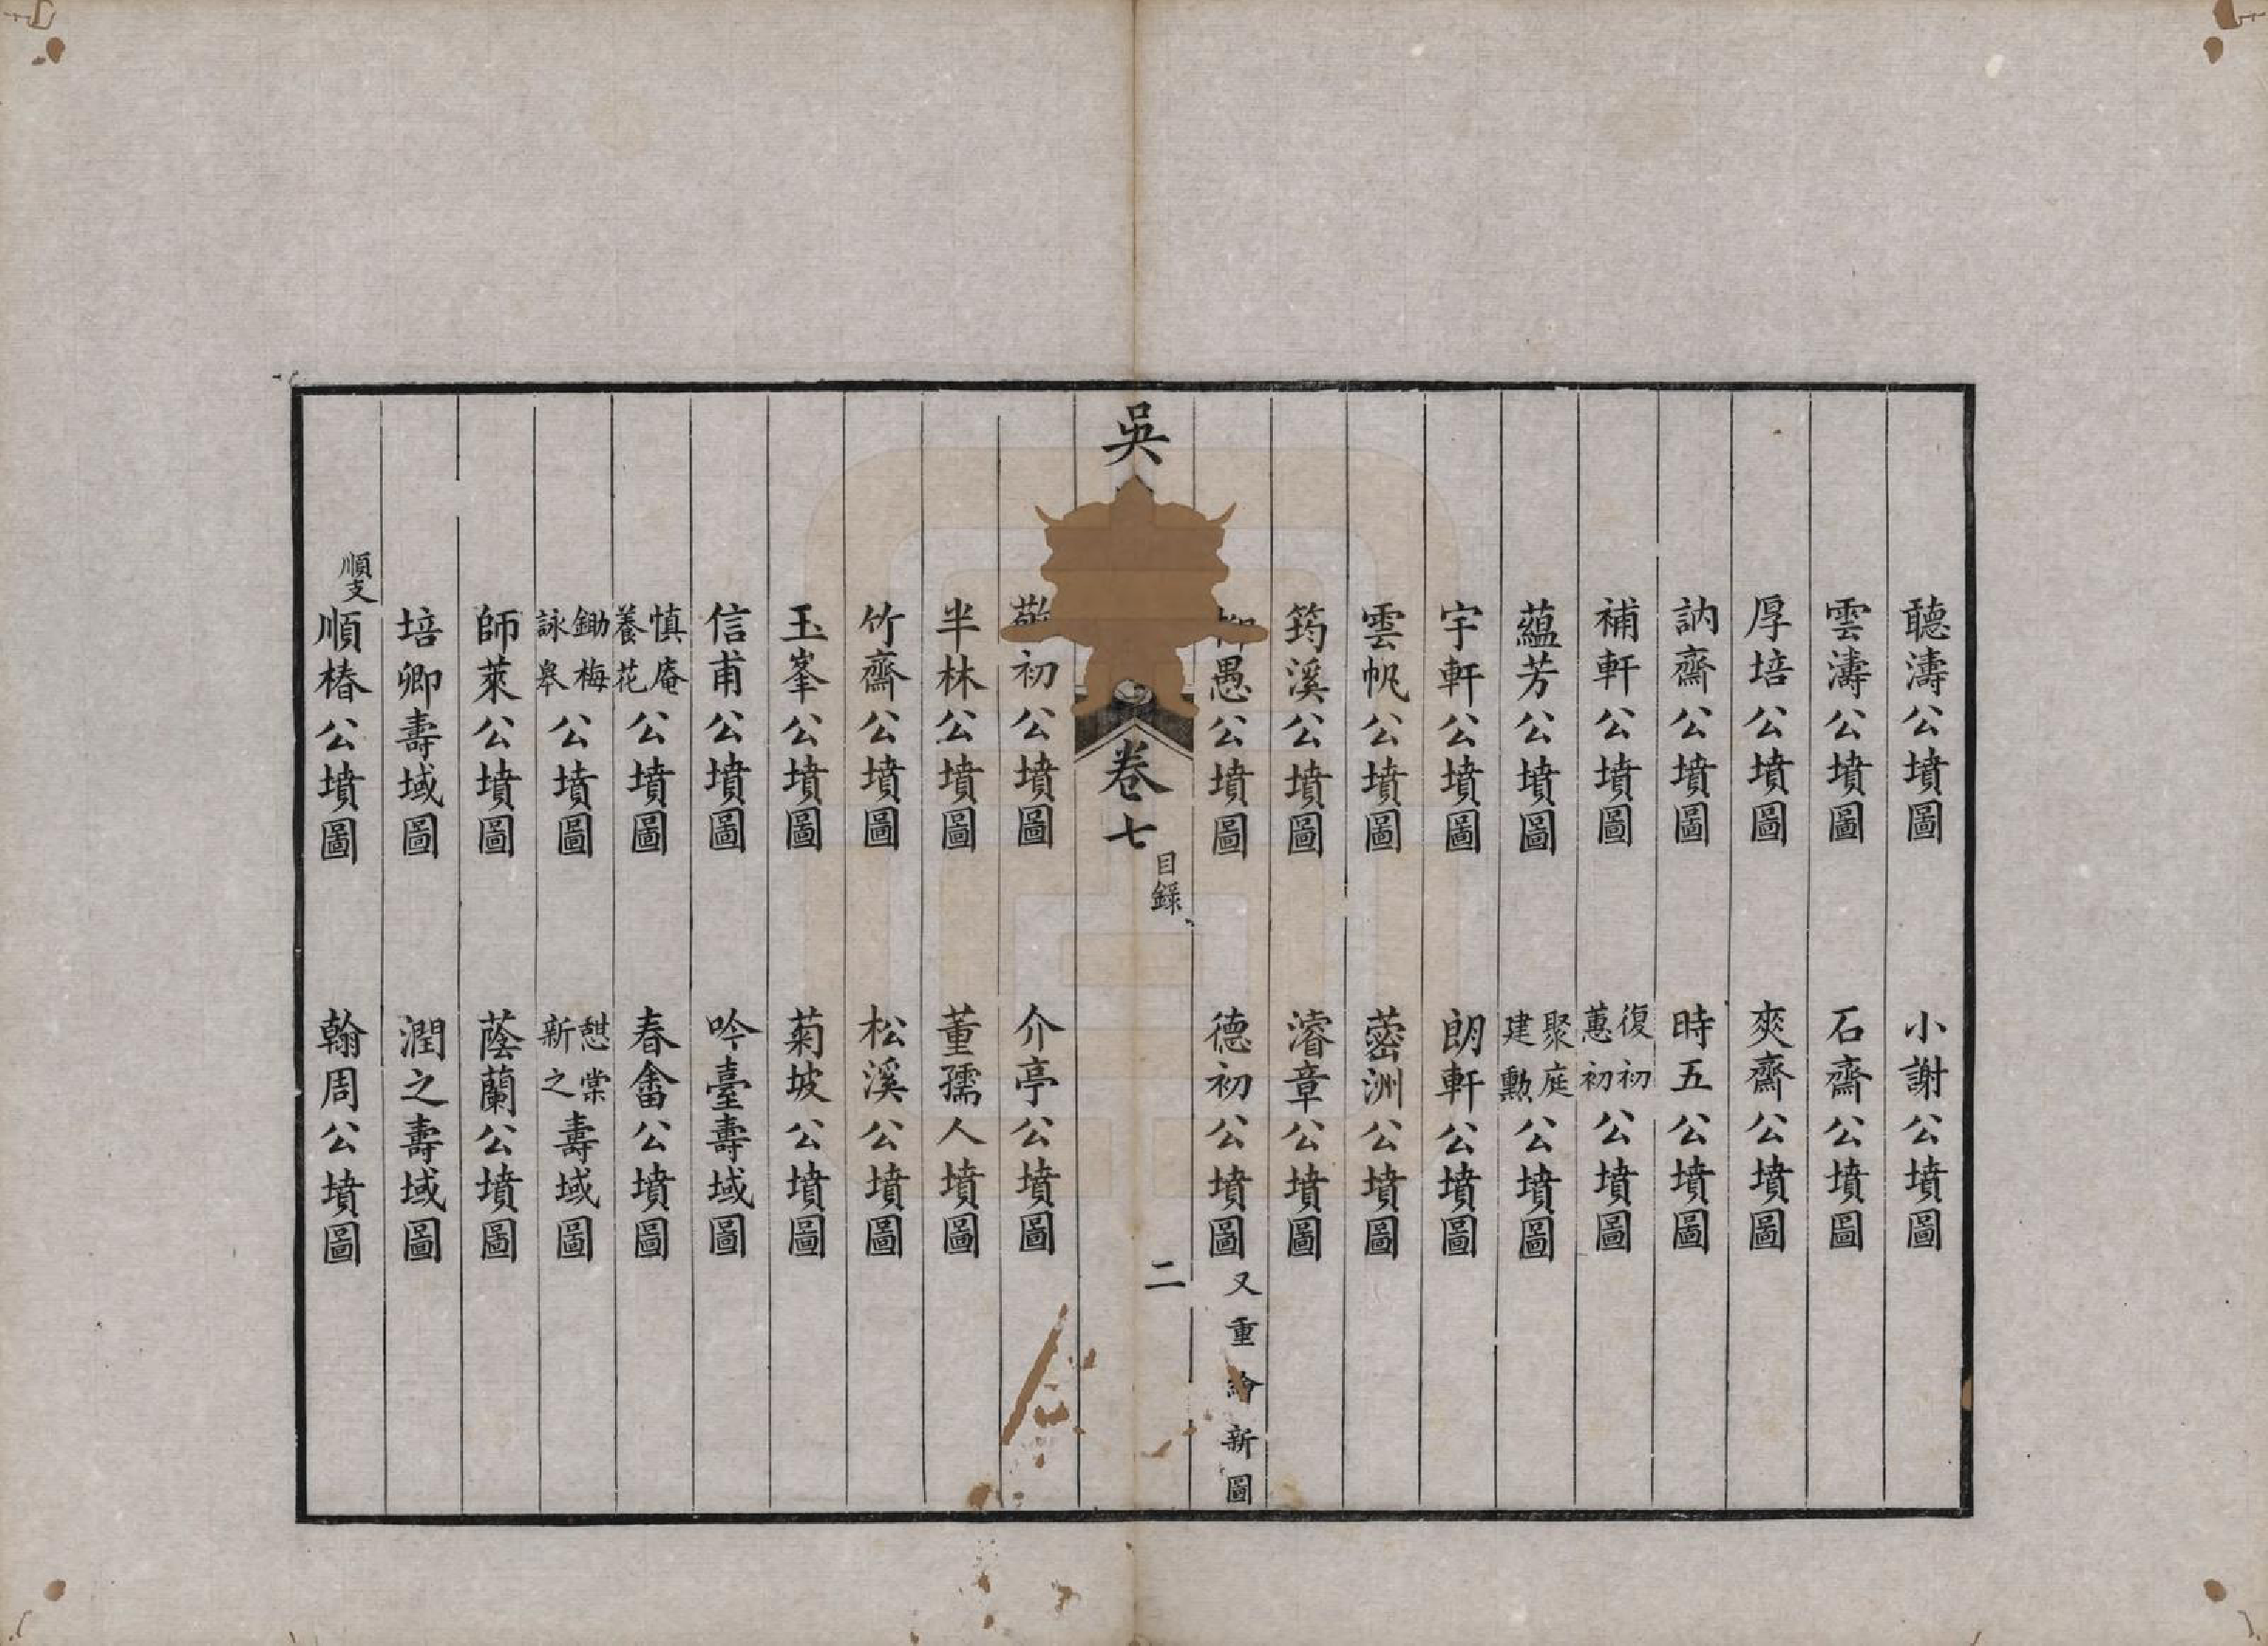 聽濤公墳圖　小謝公墳圖
雲濤公墳圖　石齋公墳圖
厚培公墳圖　奭齋公墳圖
訥齋公墳圖　時五公墳圖
補軒公墳圖　復初蕙初公墳圖
蘊芳公墳圖　聚庭建勲公墳圖
宇軒公墳圖　朗軒公墳圖
雲帆公墳圖　蓉洲公墳圖
筠溪公墳圖　濬章公墳圖
愚公墳圖　德初公墳圖又重繪新圖
吳
卷七
目錄
二
敬初公墳圖　介亭公墳圖
半林公墳圖　董孺人墳圖
竹齋公墳圖　松溪公墳圖
玉峯公墳圖　菊坡公墳圖
信甫公墳圖　吟臺壽域圖
慎庵養花公墳圖　春畬公墳圖
鋤梅詠皋公墳圖　憇棠新之壽域圖
師萊公墳圖　蔭蘭公墳圖
培卿壽域圖　潤之壽域圖
順支順椿公墳圖　翰周公墳圖